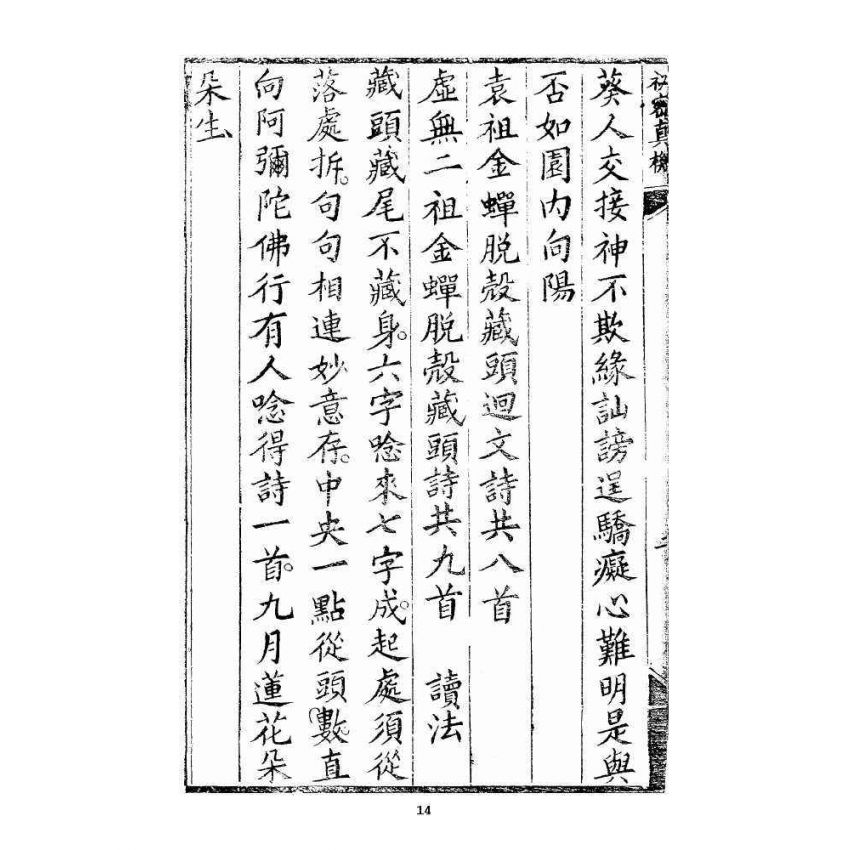 秘密真機
葵人交接神不欺緣訕謗逞驕癡心難明是與
否如園内向陽
袁祖金蟬脱殻藏頭迴文詩共八首
虛無二祖金蟬脱殻藏頭詩共九首 讀法
藏頭藏尾不藏身。六字唸來七字成。起處須從
落處拆。句句相連妙意存。中央一點從頭數。直
向阿彌陀佛行有人唸得詩一首。九月蓮花朵
朵生
14